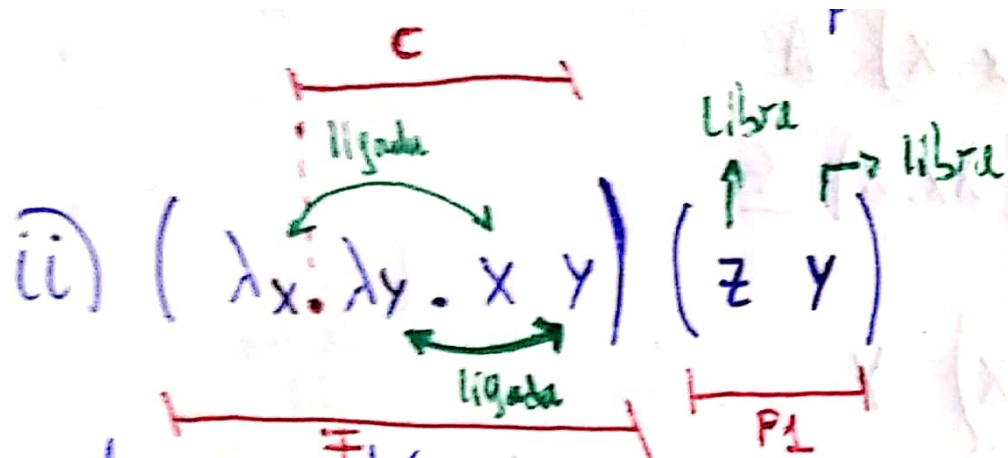 C
ligada
libre
libre
ii) (λx. λy. x y) (z y)
ligada
P1